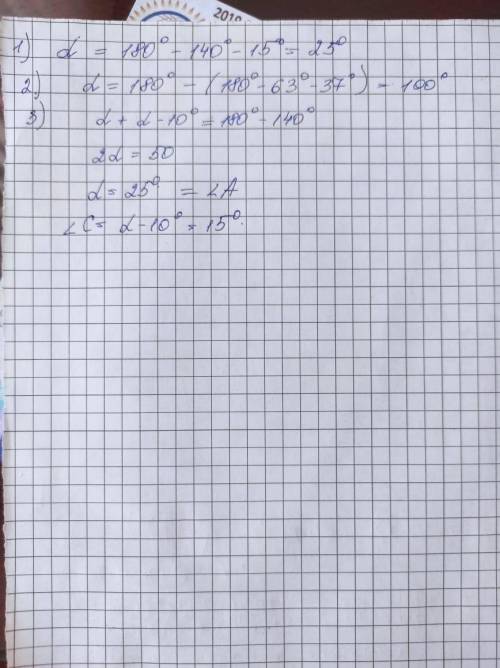 2019
1) α = 180° - 140° - 15° = 25°
2) α = 180° - (180° - 63° - 37°) = 100°
3) α + α - 10° = 180° - 140°
2α = 50
α = 25° = ∠A
∠C = α - 10° = 15°.